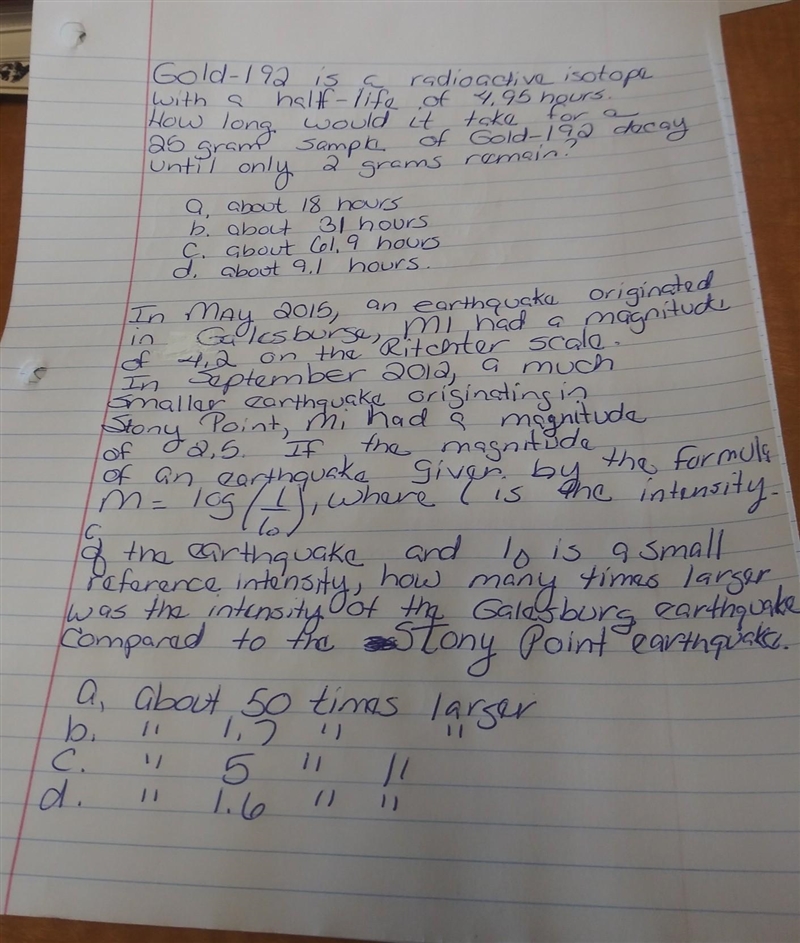 Gold-192 is a radioactive isotope
with a half-life of 4.95 hours.
How long would it take for a
25 gram sample of Gold-192 decay
until only 2 grams remain?
a. about 18 hours
b. about 31 hours
c. about 61.9 hours
d. about 9.1 hours.
In May 2015, an earthquake originated
in Galesburse, MI had a magnitude
of 4.2 on the Ritchter scale.
In September 2012, a much
smaller earthquake originating in
Stony Point, Mi had a magnitude
of 2.5. If the magnitude
of an earthquake given by the formula
M = log (I/I0), where I is the intensity
of the earthquake and I0 is a small
reference intensity, how many times larger
was the intensity of the Galesburg earthquake
Compared to the Stony Point earthquake.
a. about 50 times larger
b. " 1.7 " "
c. " 5 " "
d. " 1.6 " "